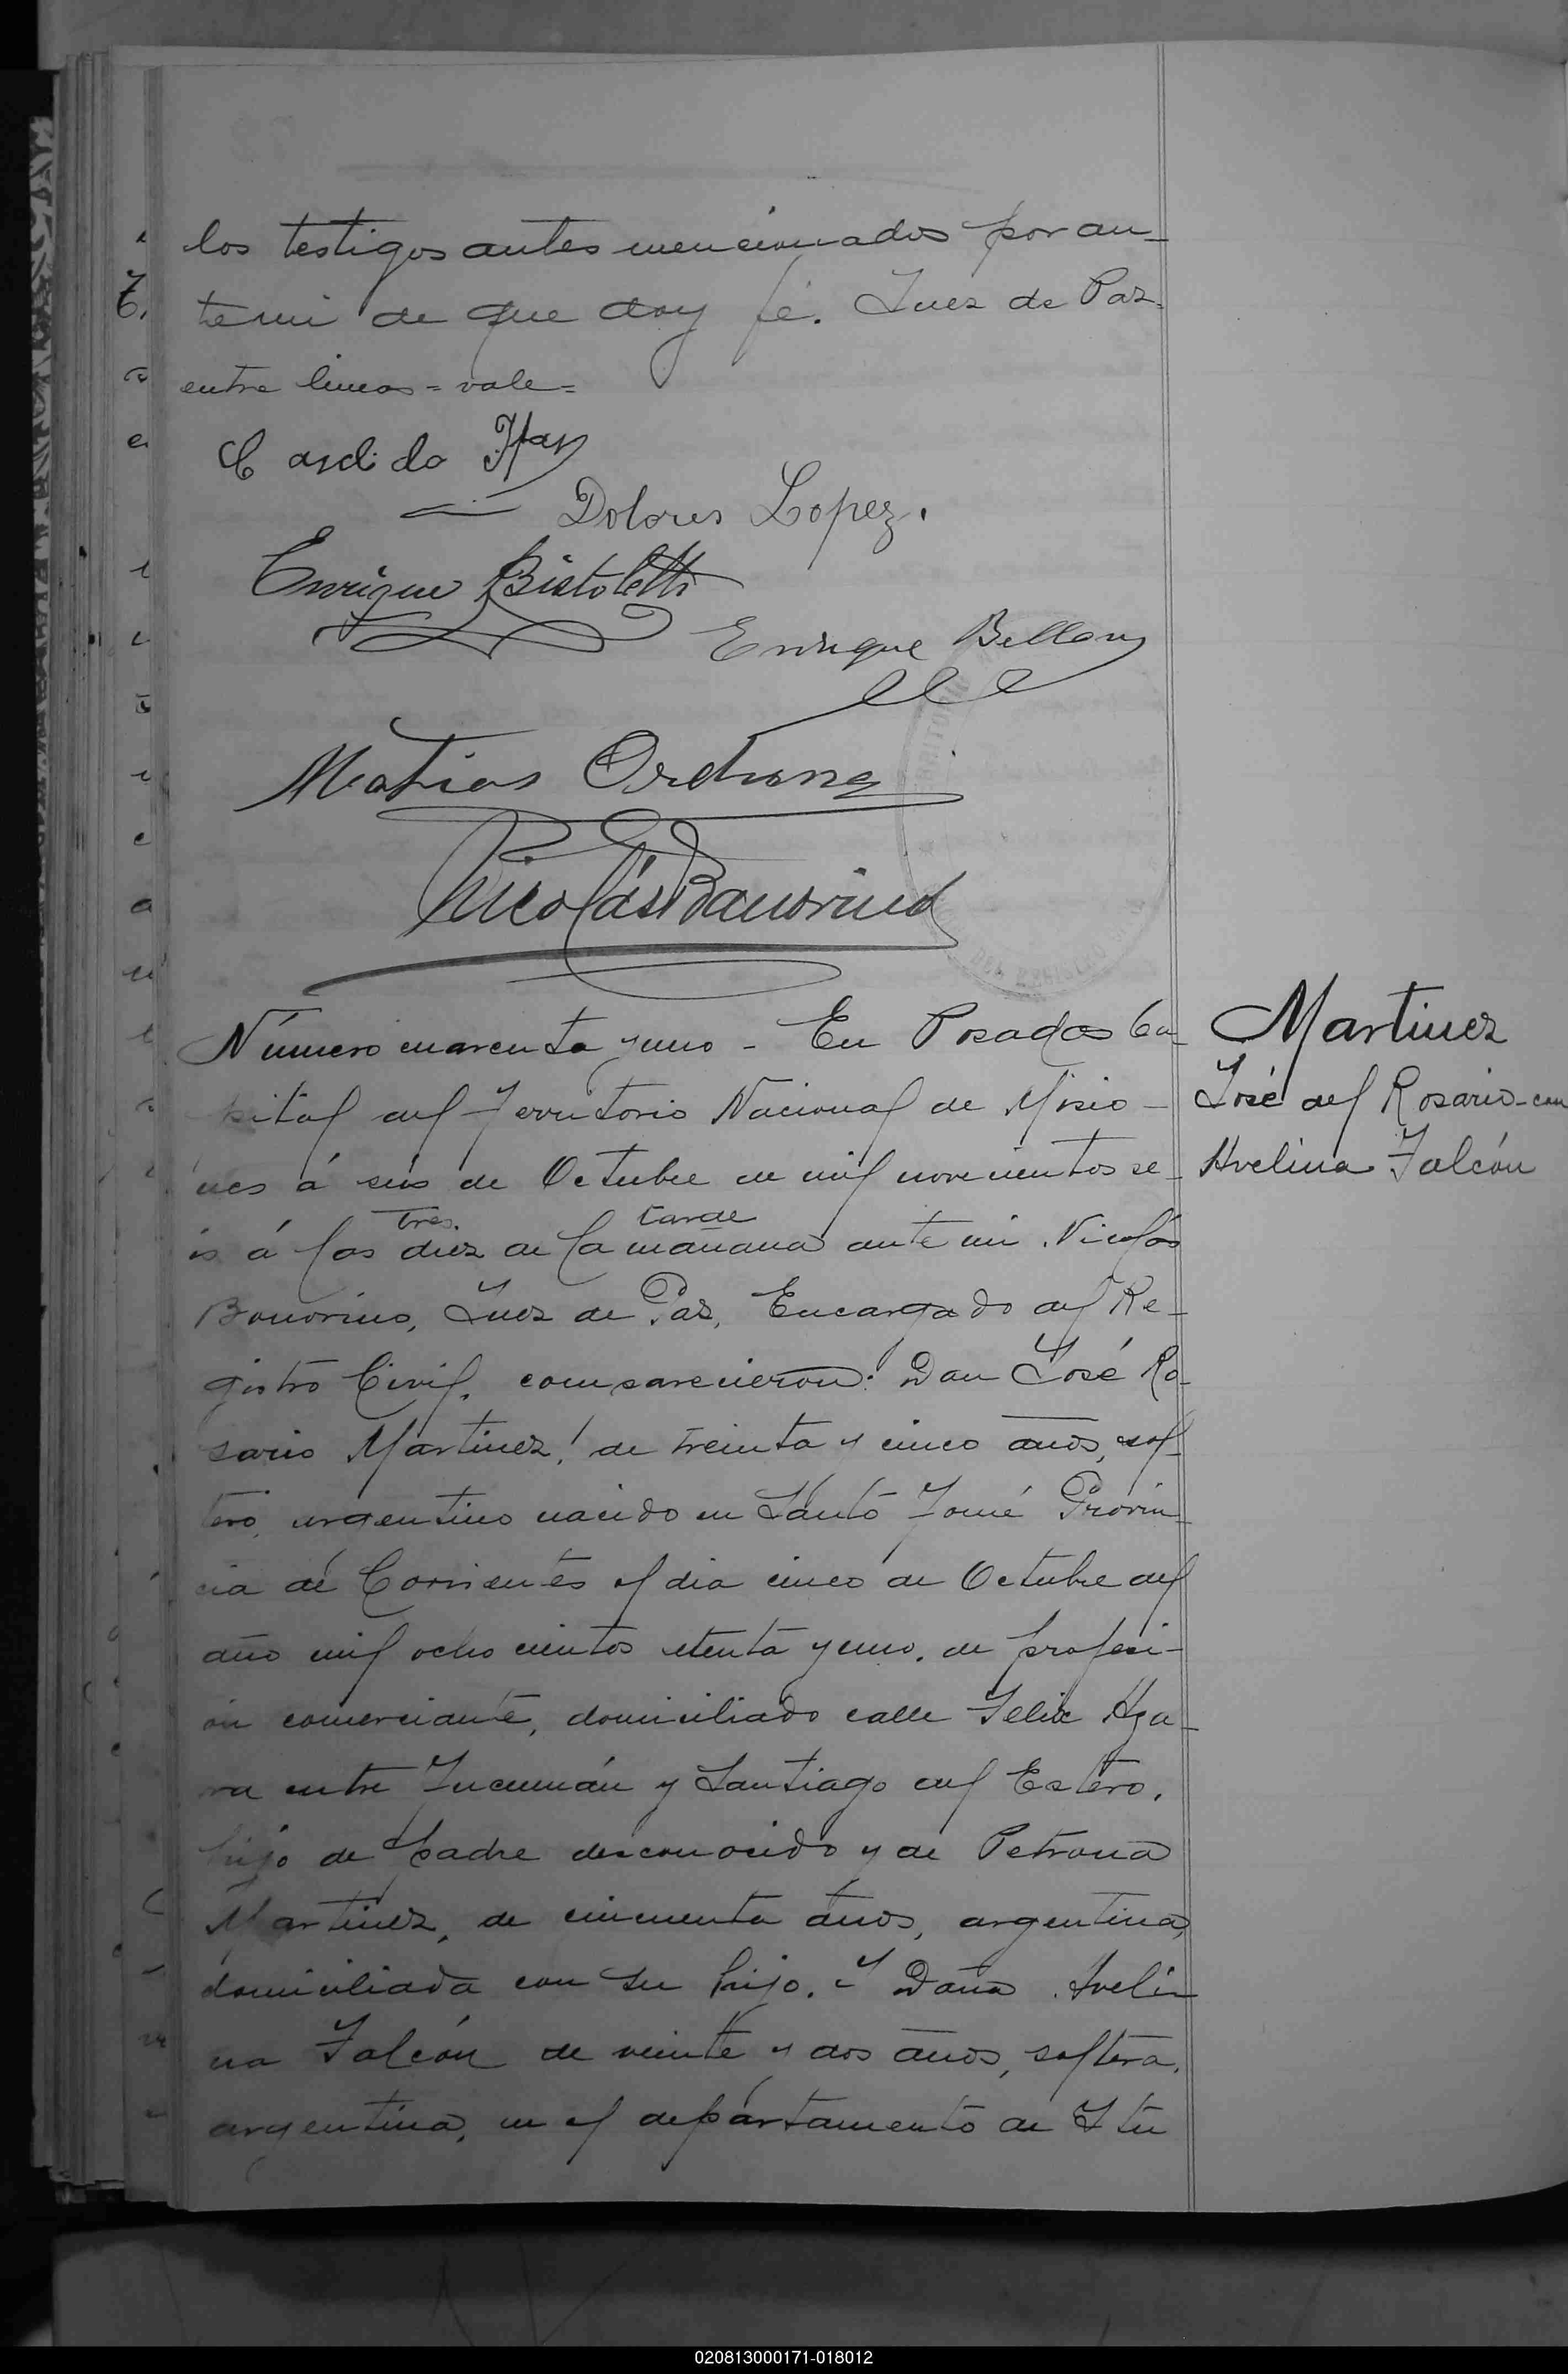 los testigos antes mencionados por an-
temi de que doy fé. Juez de Paz-
entre lineas = vale=
Dolores Lopez.
Enrique Bistoletti
Enrique Bellony
Matias Orduna
Nicolás Bonorino
Número cuarenta y uno - En Posadas Ca-
pital del Territorio Nacional de Misio-
nes á seis de Octubre de mil novecientos se-
tres. tarde
is á las diez de la mañana ante mi Nicolás
Bonorino, Juez de Paz, Encargado del Re-
gistro Civil, comparecieron: Don José Ro-
sario Martinez, de treinta y cinco años, sol-
tero, argentino nacido en Santo Tomé Provin-
cia de Corrientes el dia cinco de Octubre del
año mil ocho cientos setenta y uno, de profesi-
ón comerciante, domiciliado calle Felix Aza-
ra entre Tucumán y Santiago del Estero,
hijo de padre desconocido y de Petrona
Martinez, de cincuenta años, argentina,
domiciliada con su hijo. Y Doña Aveli-
na Falcón de veinte y dos años, soltera,
argentina, en el departamento de Itu
Martinez
José del Rosario-con
Avelina Falcón
020813000171-018012